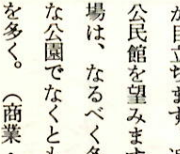 が目立ちます。
公民館を望みます
場は、なるべく多
な公園でなくとも
を多く。（商業・